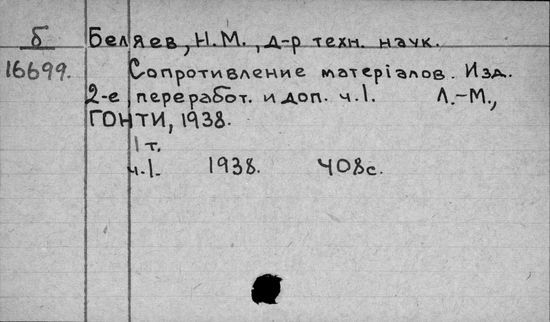 б Беляев, Н.М., д-р техн. наук.
16699. Сопротивление матеріалов. Изд.
2-е, переработ. и доп. ч.I. Л.-М.,
ГОНТИ, 1938.
1 т.
ч.I. 1938. 408с.